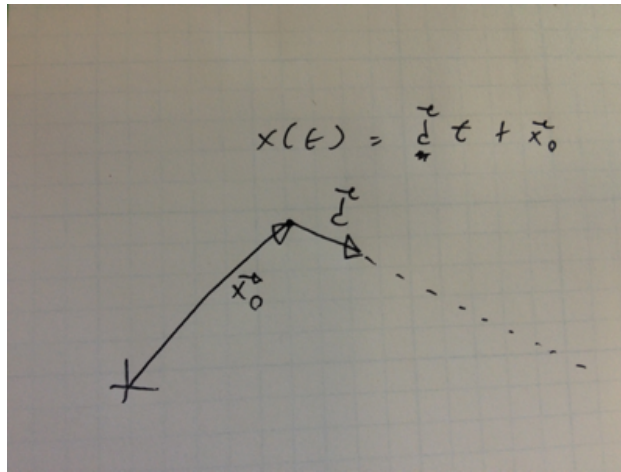 x(t) = d⃗ t + x⃗₀
d⃗
x⃗₀